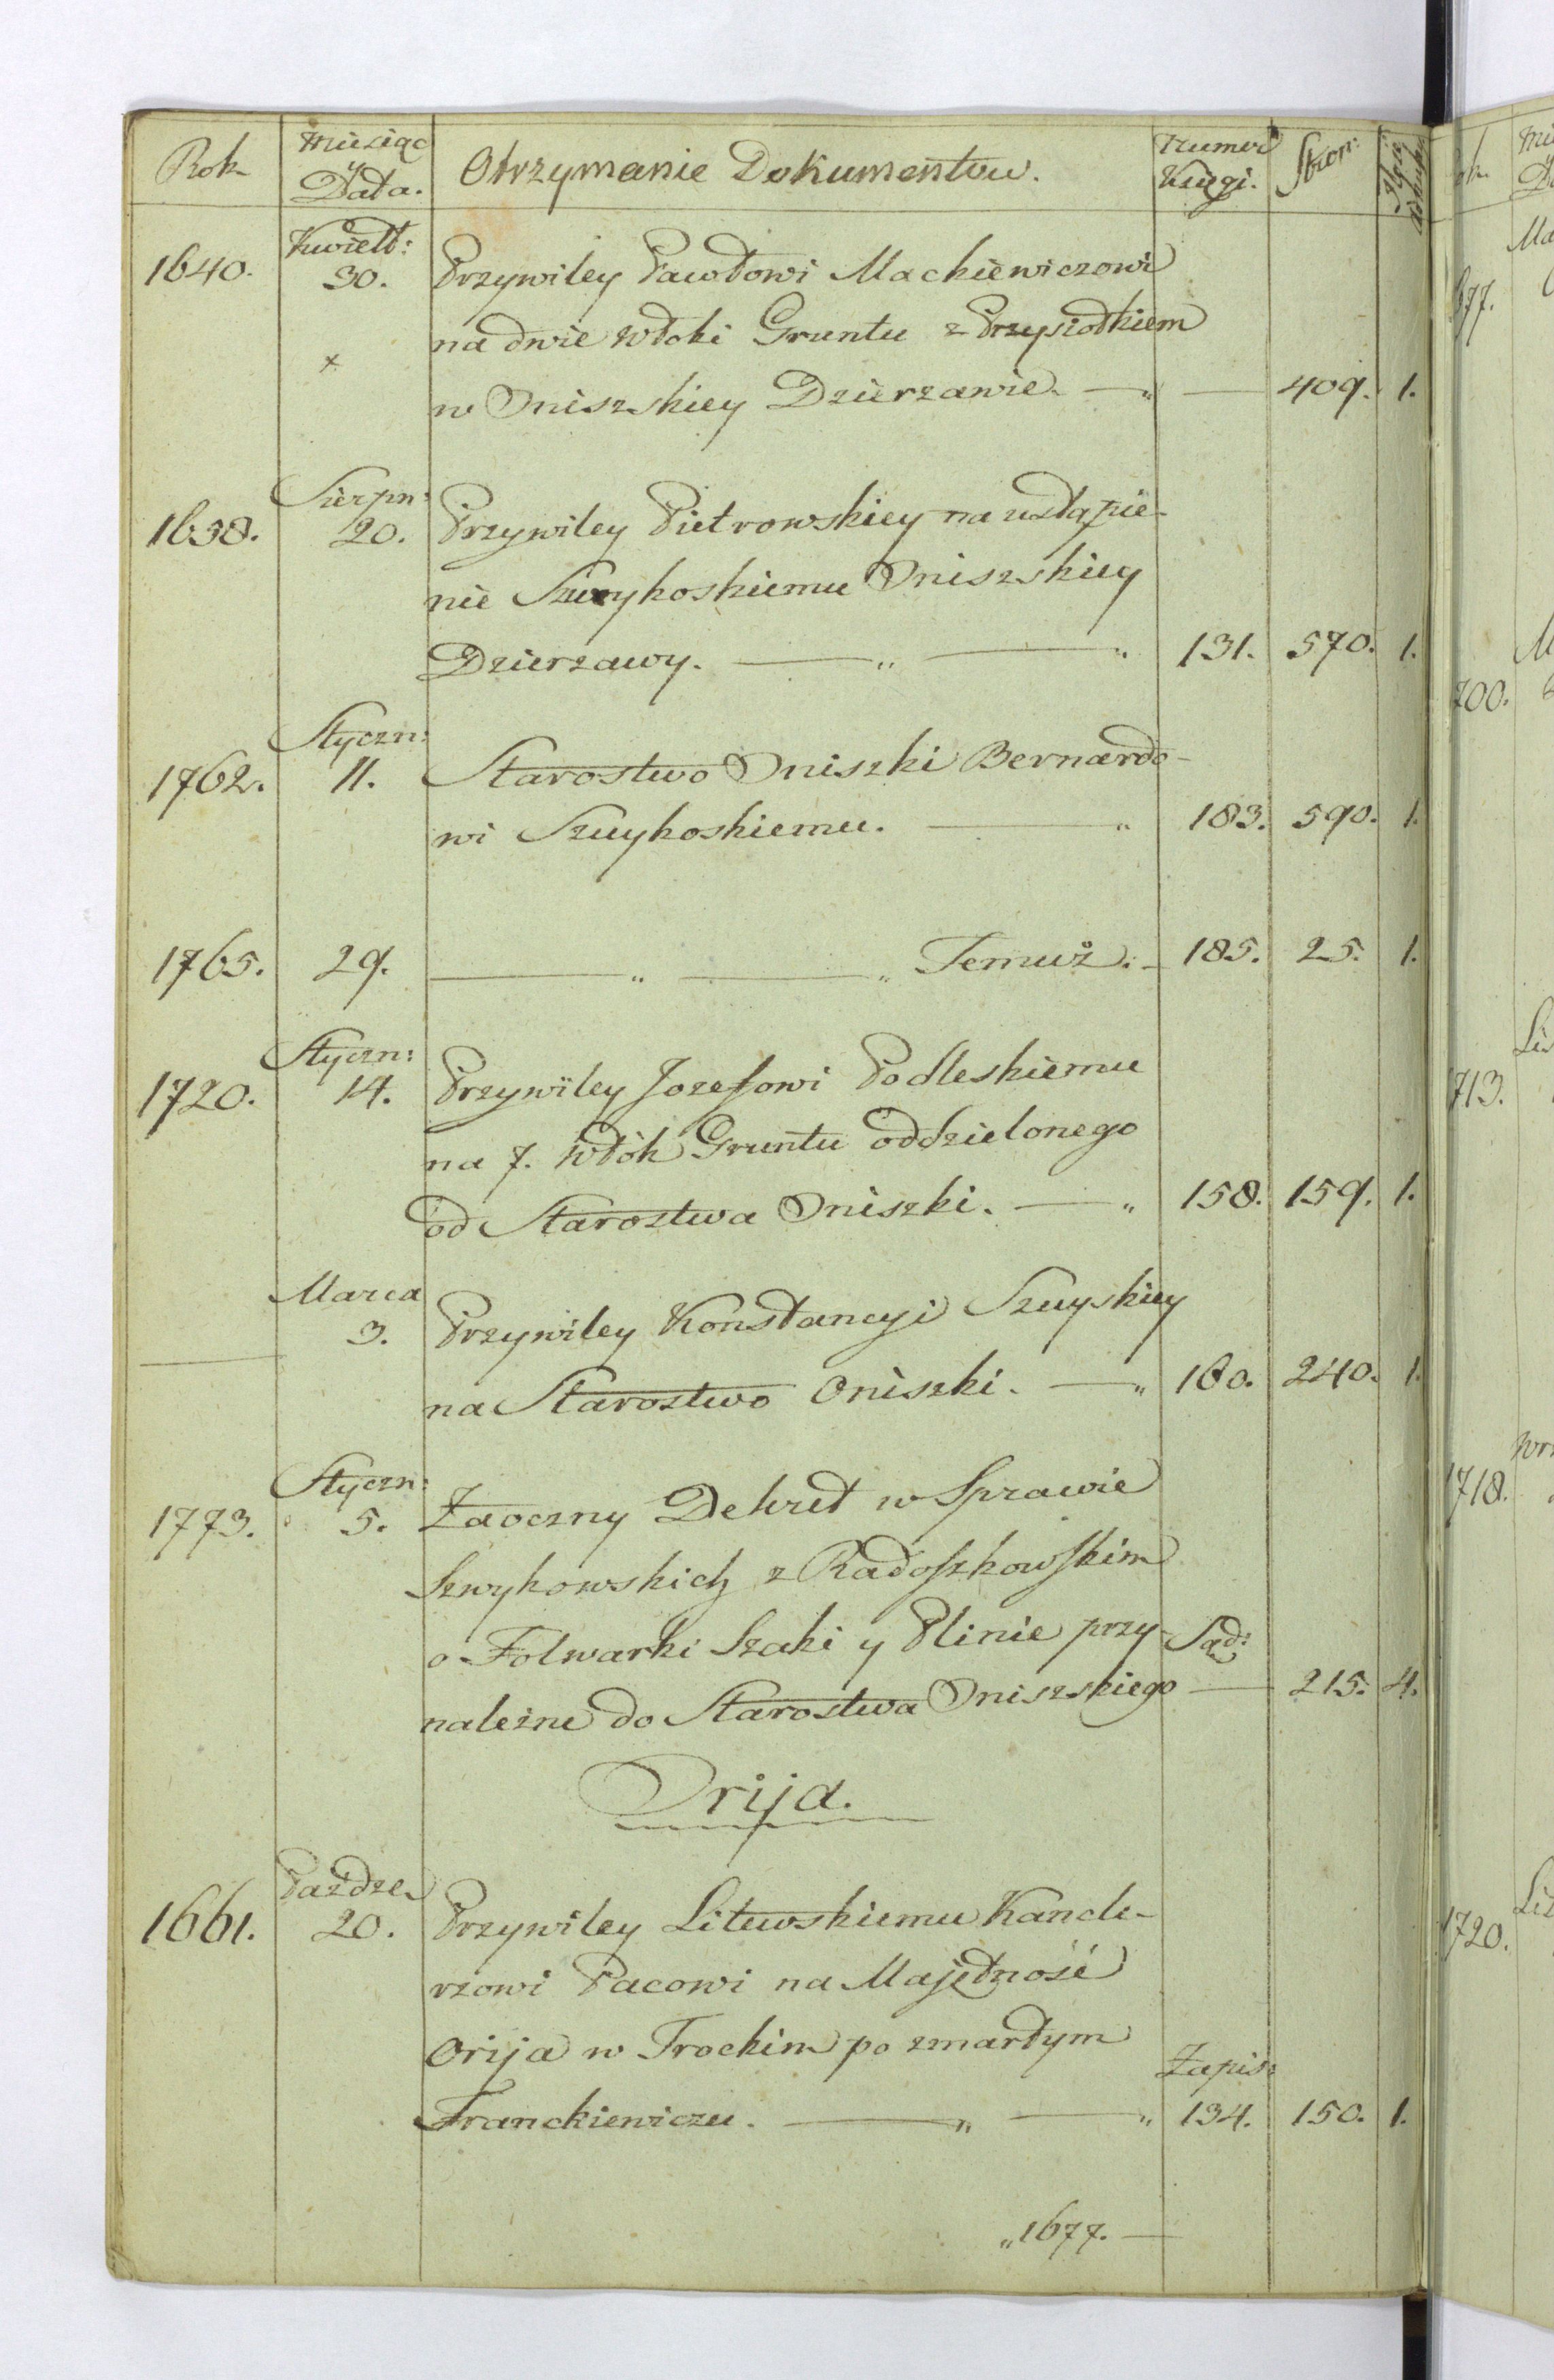 Rok Miesiąc y Data. Otrzymanie Dokumentow. Numer Księgi. Stron:
1640. Kwiett: 30. Przywiley Pawłowi Mackiewiczowi
na dwie włoki Gruntu z Przysiołkiem
w Oniszskiey Dzierzawie. — „ — 409. 1.
1638. Sierpn: 20. Przywiley Pietrowskiey na ustąpie-
nie Szwykoskiemu Oniszskiey
Dzierzawy. — „ — „ 131. 570. 1.
1762. Styczn: 11. Starostwo Oniszki Bernardo-
wi Szuykoskiemu. — „ 183. 590. 1.
1765. 29. — „ — „ Temuż. - 185. 25. 1.
1720. Styczn: 14. Przywiley Jozefowi Podleskiemu
na 7. włók Gruntu oddzielonego
od Starostwa Oniszki. — „ 158. 159. 1.
— Marca 3. Przywiley Konstancyi Szuyskiey
na Starostwo Oniszki. — „ 160. 240. 1.
1773. Styczn: 5. Zaoczny Dekret w Sprawie
Szwykowskich z Radoszkowskim
o Folwarki Szaki y Plinie przy-
należne do Starostwa Oniszskiego Sąd: — 215. 4.
Orija.
1661. Paźdze. 20. Przywiley Litewskiemu Kancle-
rzowi Pacowi na Majętność
Orija w Trockim po zmarłym
Franckiewiczu. — „ — „ Zapis: 134. 150. 1.
„1677. —
877.
Ma
700.
M
713.
Li
1718.
Wr
1720.
Li